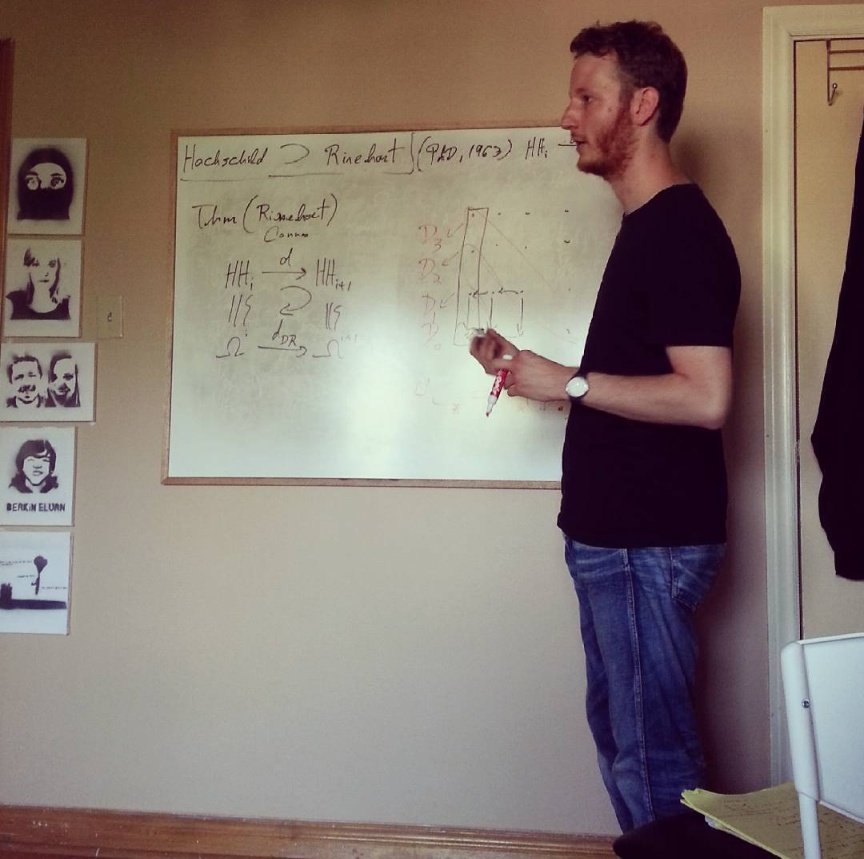 Hochschild ⊃ Rinehart (PhD, 1963) HHᵢ
Thm (Rinehart)
Connes
HHᵢ d→ HHᵢ₊₁
Ωⁱ d_DR→ Ωⁱ⁺¹
D₃
D₂
D₁
D₀
BERKİN ELVAN